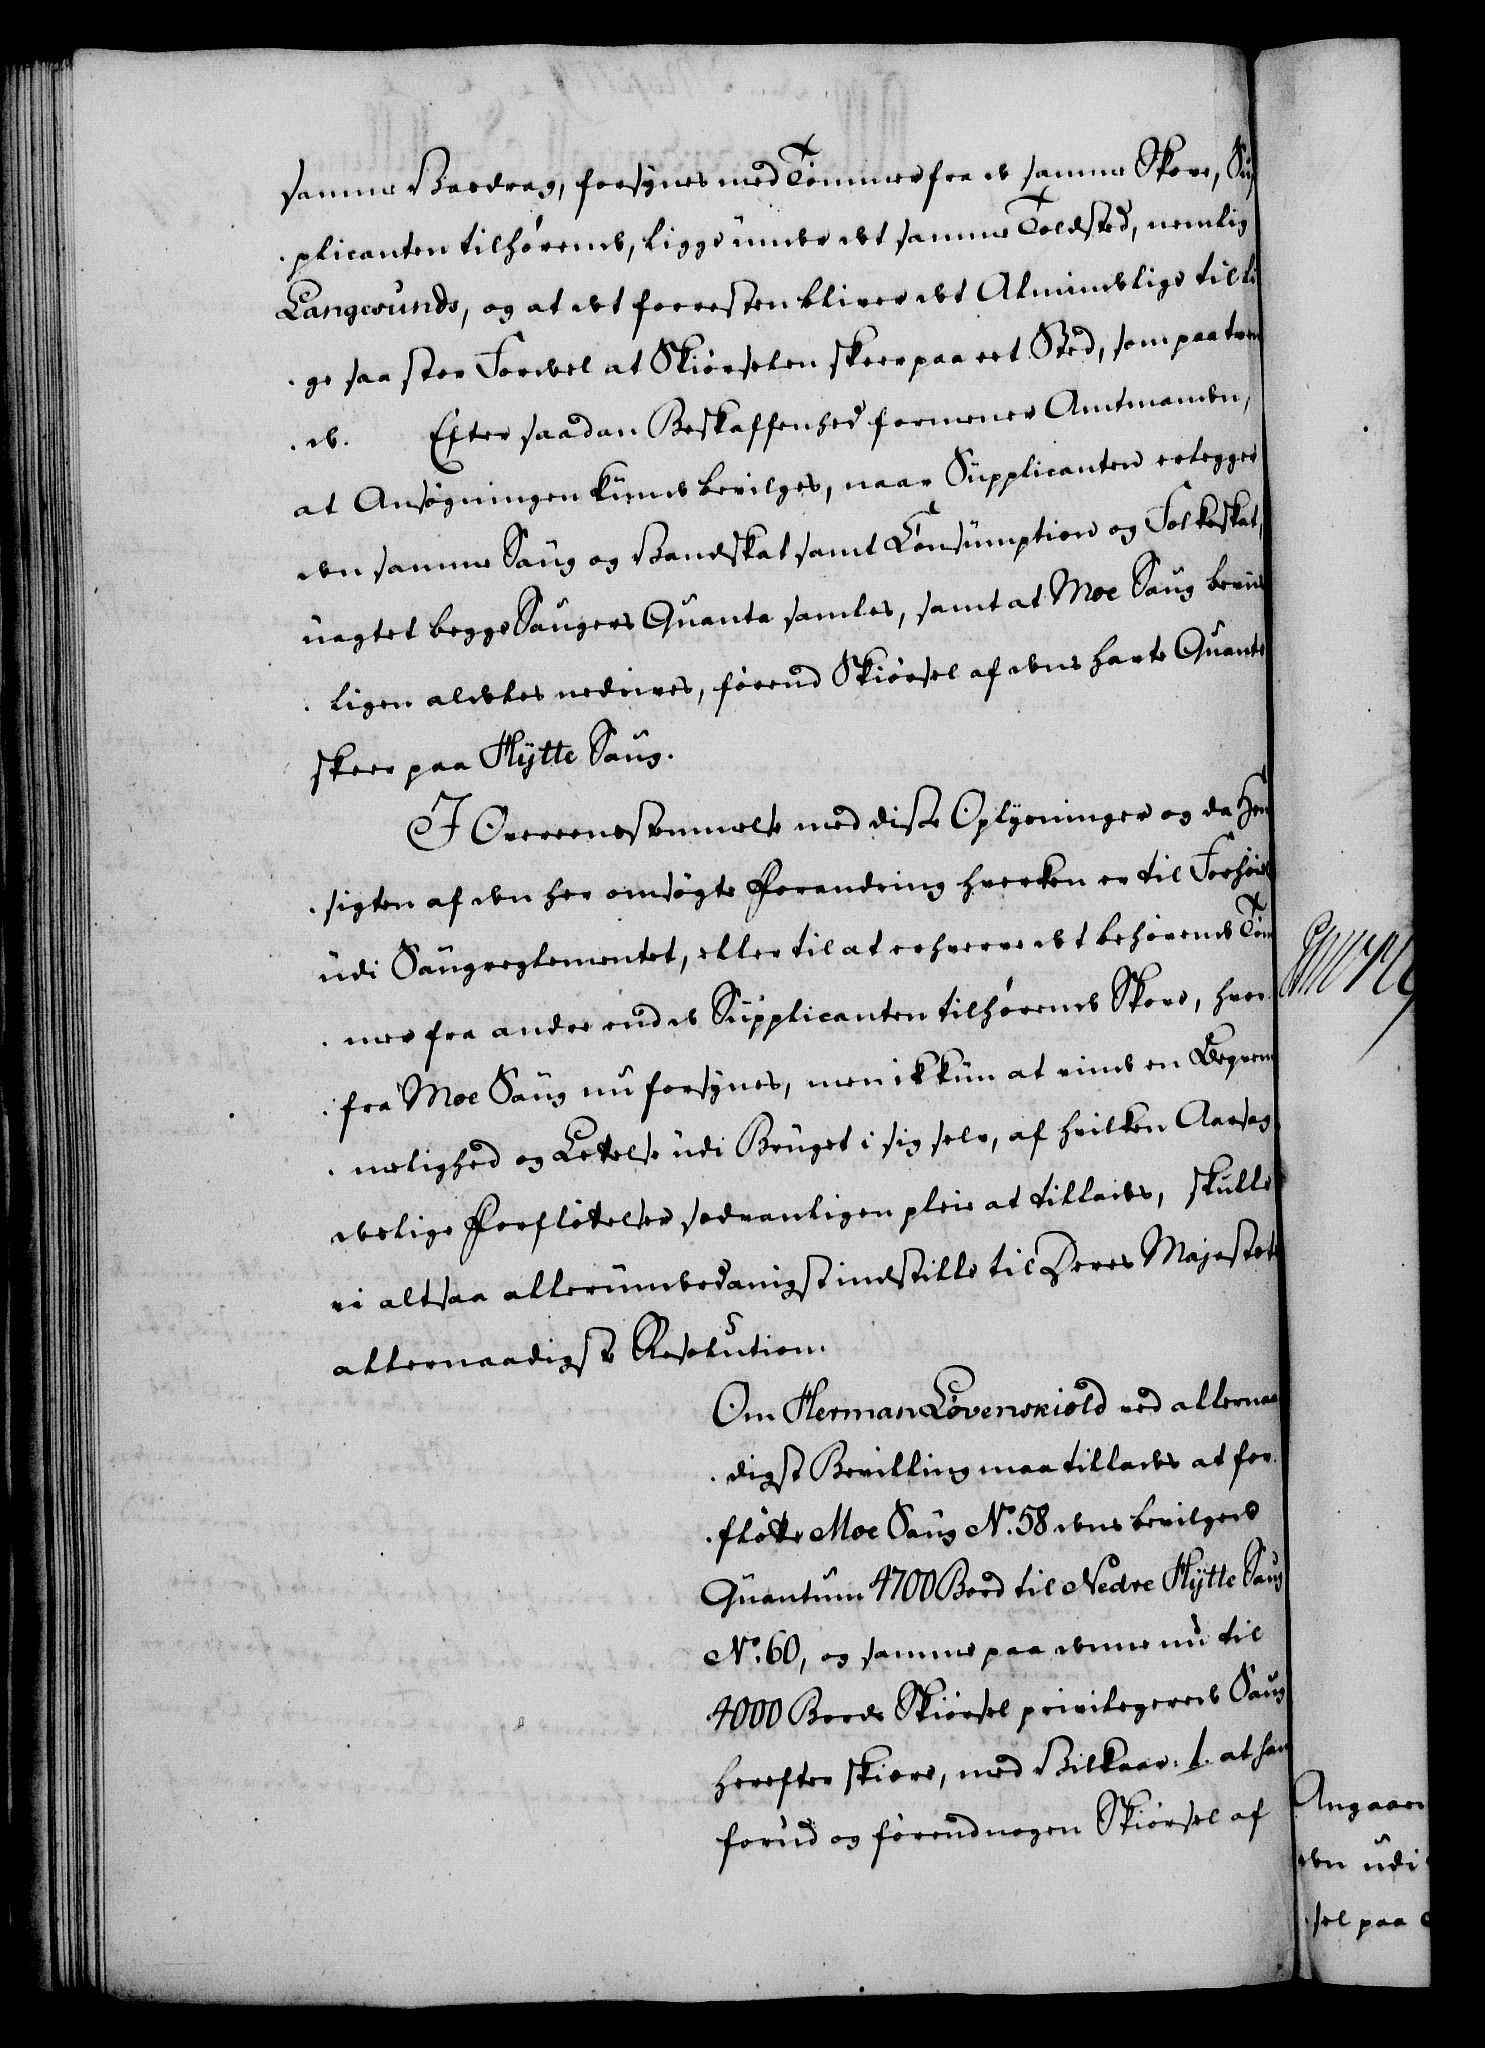 samme Vasdrag, forsynes med Tømmer fra de samme Skove, Sup
plicanten tilhørende, ligge under det samme Toldsted, nemlig
Langesunds, og at det forresten bliver det Almindelige tilli
ge saa stor Fordel at Skiørselen skeer paa eet Sted, som paa tven
de. Efter saadan Beskaffenhed formener Amtmanden,
at Ansøgningen kunde bevilges, naar Supplicanten erlegger
den samme Saug og Vandskat samt Consumption og Folkeskat,
uagtet begge Saugers Quanta samles, samt at Moe Saug bevis
ligen aldeles nedrives, førend Skiørsel af dens havte Quanto
skeer paa Hytte Saug.
I Overeensstemmelse med disse Oplysninger og da Hen
sigten af den her omsøgte Forandring hverken er til Forhøielse
udi Saugreglementet, eller til at erhverve det behøvende Tøm
mer fra andre end de Supplicanten tilhørende Skove, hvor
fra Moe Saug nu forsynes, men ikkun at vinde en Beqvem
melighed og Letelse udi Bruget i sig selv, af hvilken Aarsag
deslige Forfløtelser sedvanligen pleie at tillades, skulle
vi altsaa allerunderdanigst indstille til Deres Majestets
allernaadigste Resolution.
Om Herman Løvenskiold ved allernaa
digst Bevilling maa tillades at for
fløtte Moe Saug No. 58 dens bevilgede
Quantum 4700 Bord til Nedre Hytte Saug
No. 60, og samme paa denne nu til
4000 Bords Skiørsel privilegerede Saug
herefter skiære, med Vilkaar: 1. at han
forud og førend nogen Skiørsel af
Angaaen
den udi
sel paa